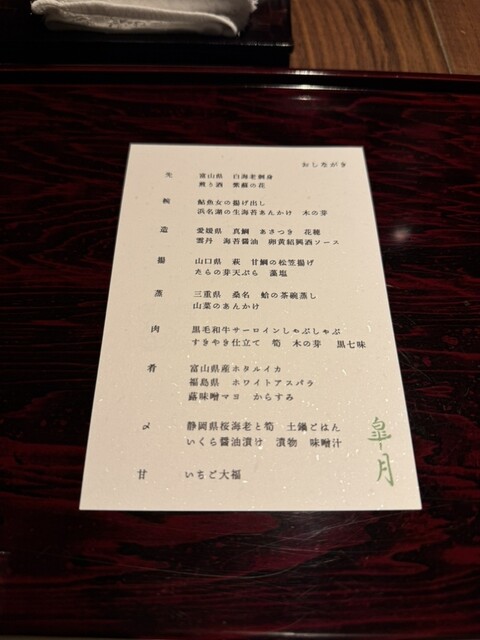 おしながき
先 富山県 白海老刺身
煎り酒 紫蘇の花
椀 鮎魚女の揚げ出し
浜名湖の生海苔あんかけ 木の芽
造 愛媛県 真鯛 あさつき 花穂
雲丹 海苔醤油 卵黄紹興酒ソース
揚 山口県 萩 甘鯛の松笠揚げ
たらの芽天ぷら 藻塩
蒸 三重県 桑名 蛤の茶碗蒸し
山菜のあんかけ
肉 黒毛和牛サーロインしゃぶしゃぶ
すきやき仕立て 筍 木の芽 黒七味
肴 富山県産ホタルイカ
福島県 ホワイトアスパラ
蕗味噌マヨ からすみ
〆 静岡県桜海老と筍 土鍋ごはん
いくら醤油漬け 漬物 味噌汁
甘 いちご大福
皐月